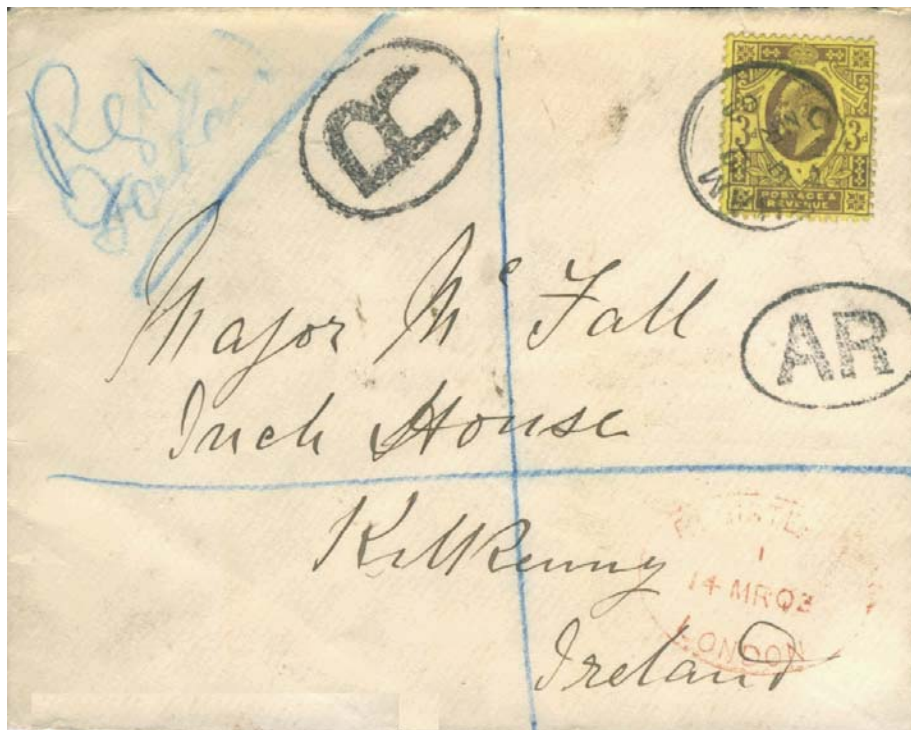 Reg
R
3D 3D
POSTAGE &
REVENUE
Major Mc Fall
AR
Inch House
Kilkenny
Ireland
REGISTERED
1
14 MR 03
LONDON